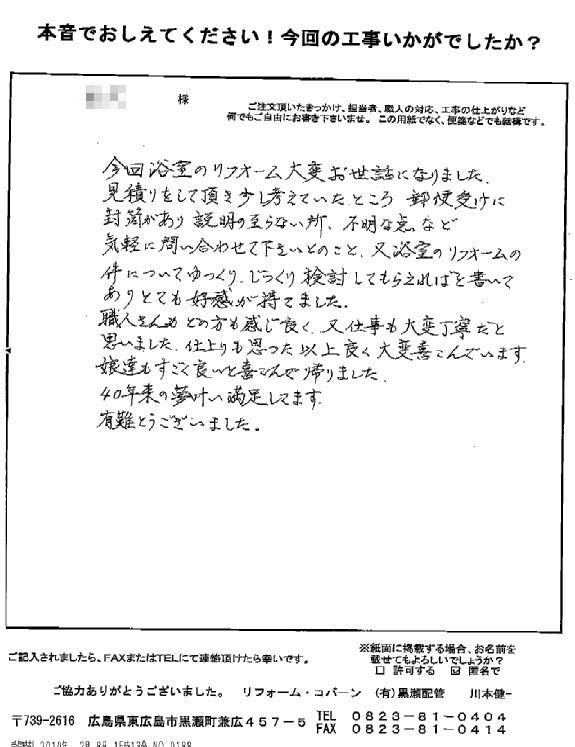 本音でおしえてください！今回の工事いかがでしたか？
様
ご注文頂いたきっかけ、担当者、職人の対応、工事の仕上がりなど
何でもご自由にお書き下さいませ。この用紙でなく、便箋などでも結構です。
今回浴室のリフォーム大変お世話になりました、
見積りをして頂き少し考えていたところ 郵便受けに
封筒があり 説明の至らない所、不明な点など
気軽に問い合わせて下さいとのこと、又浴室のリフォームの
件についてゆっくり、じっくり検討してもらえればと書いて
ありとても好感が持てました。
職人さんもどの方も感じ良く、又仕事も大変丁寧だと
思いました、仕上りも思った以上良く大変喜こんでいます
娘達もすごく良いと喜こんで帰りました、
40年来の夢叶い満足してます
有難とうございました。
ご記入されましたら、FAXまたはTELにて連絡頂けたら幸いです。
※紙面に掲載する場合、お名前を
載せてもよろしいでしょうか？
□ 許可する ☑ 匿名で
ご協力ありがとうございました。 リフォーム・コバーン (有)黒瀬配管 川本健一
〒739-2616 広島県東広島市黒瀬町兼広４５７－５ TEL ０８２３－８１－０４０４
FAX ０８２３－８１－０４１４